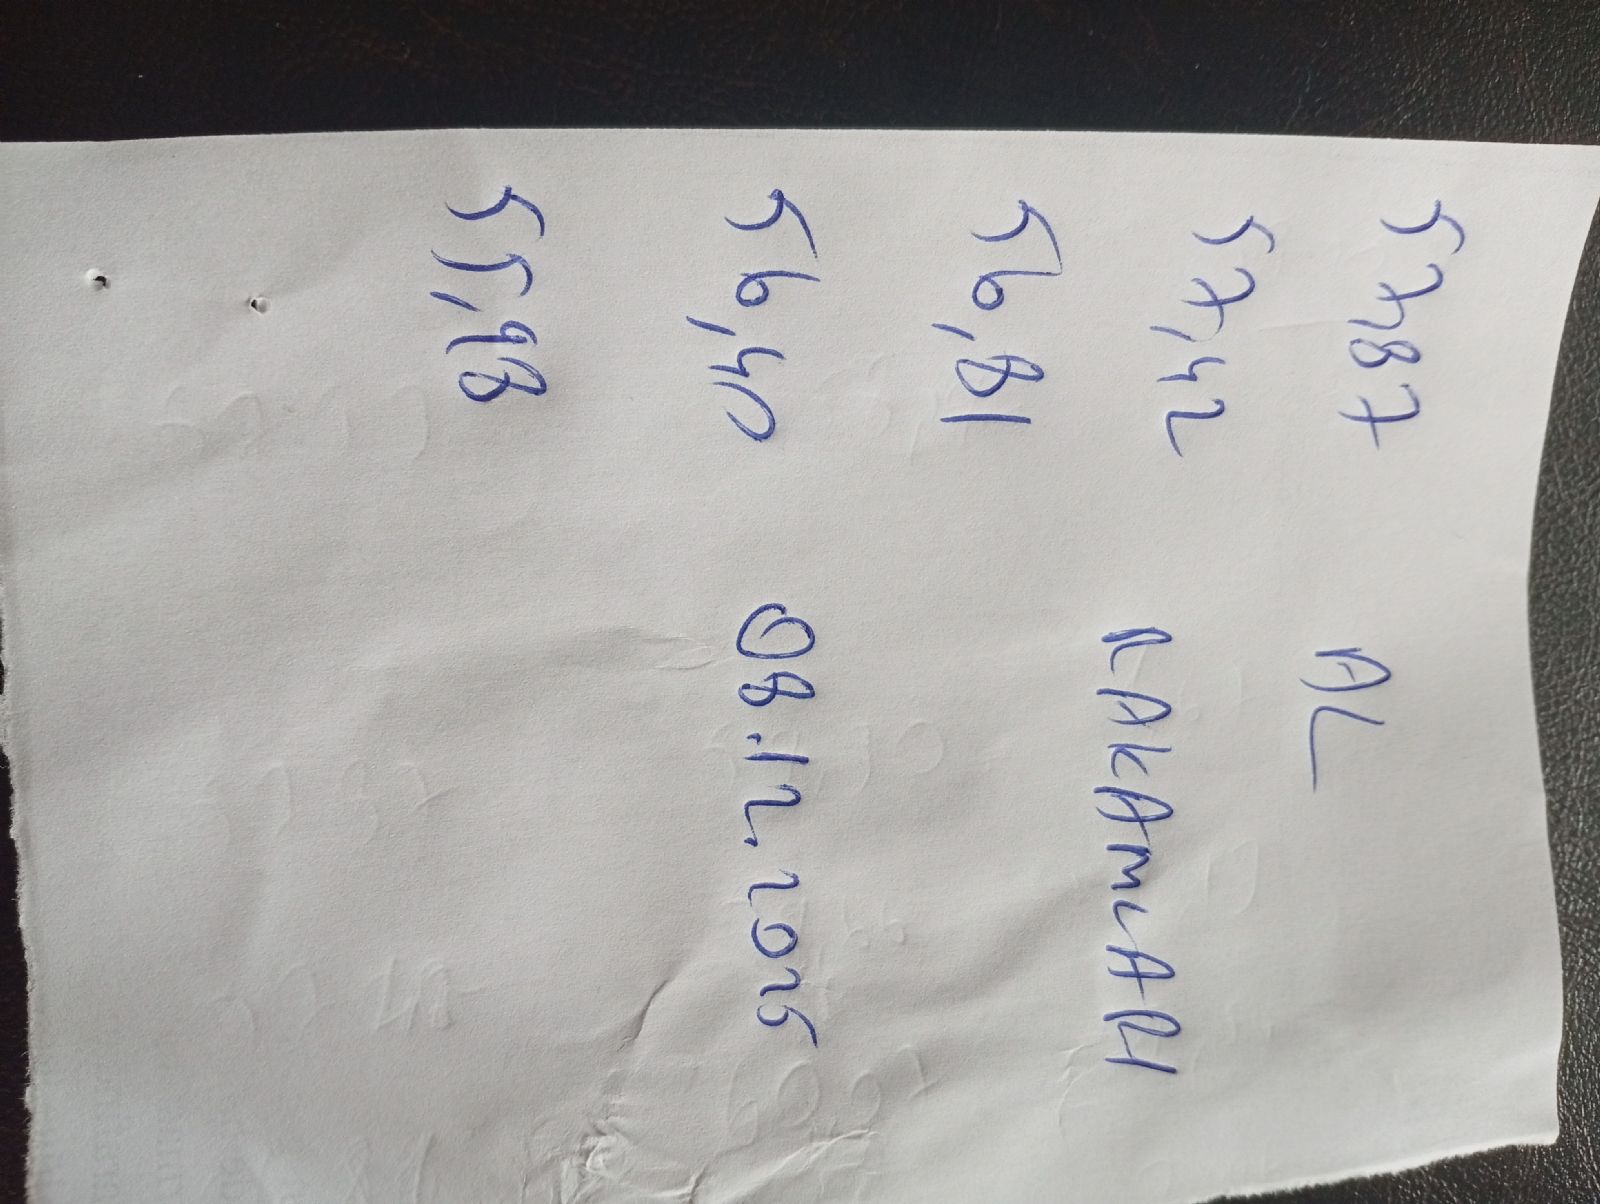 57,87
AL
57,42
RAKAMLARI
56,81
56,40
08.12.2025
55,98